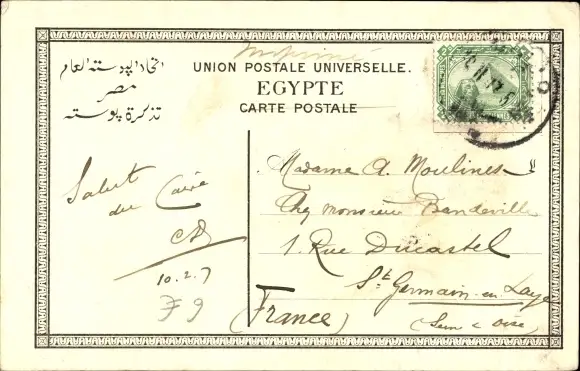 Imprimé
اتحاد البوسته العام
مصر
تذكرة بوسته
UNION POSTALE UNIVERSELLE.
EGYPTE
CARTE POSTALE
Salut
du Caire
10.2.7
F 9
Madame A. Moulines
Chez monsieur Bandeville
1. Rue Ducastel
St Germain-en Laye
(France)
(Seine & Oise)